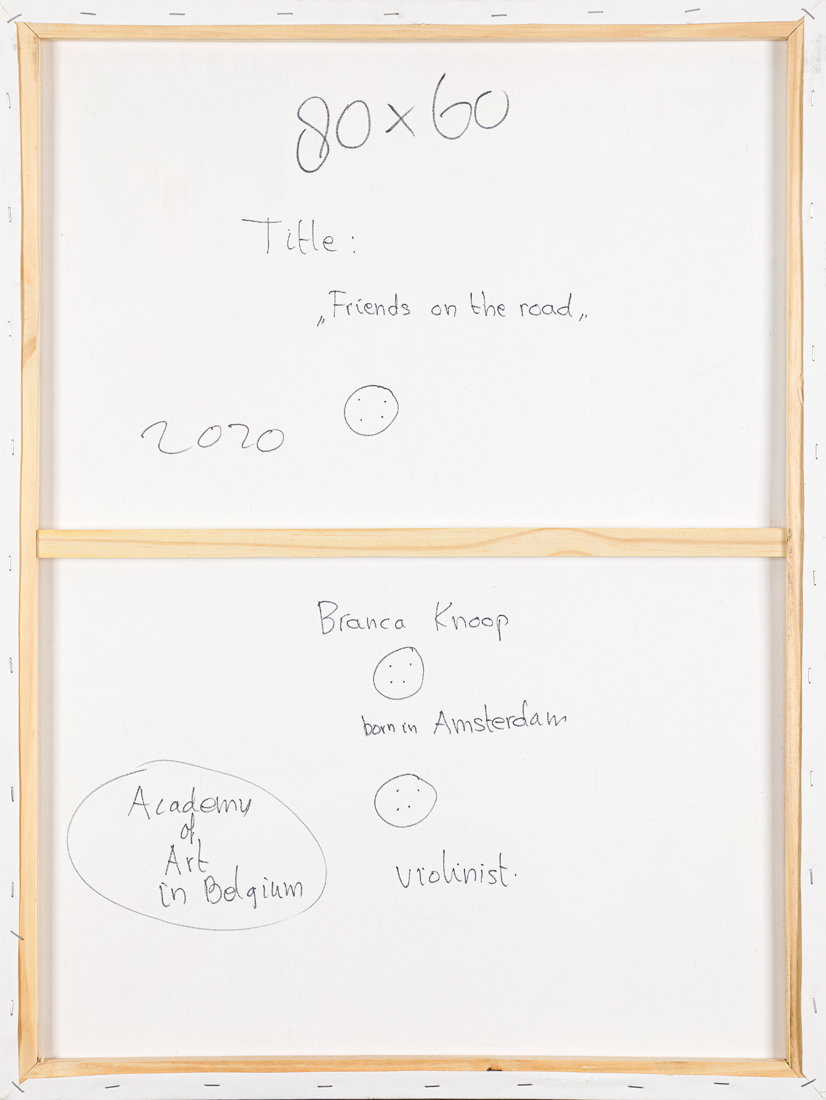 80 x 60
Title:
„Friends on the road„
2020
Branca Knoop
born in Amsterdam
Academy
of
Art
in Belgium
violinist.